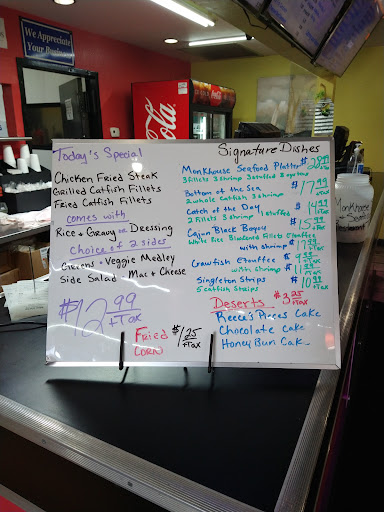 We Appreciate
Your Business
Coca-Cola
Today's Special
Chicken Fried Steak
Grilled Catfish Fillets
Fried Catfish Fillets
comes with
Rice & Gravy or Dressing
Choice of 2 sides
Greens - Veggie Medley
Side Salad - Mac & Cheese
$12.99
+Tax
Fried
Corn
$1.25
+Tax
Signature Dishes
MonKhouse Seafood Platter
3 fillets 3 shrimp 3 stuffed 3 oysters
Bottom of the Sea $17.99
2 whole Catfish 3 shrimp +Tax
Catch of the Day 1 stuffed $14.99
2 fillets 3 shrimp +Tax
Cajun Black Bayou $15.99
White Rice Blackened fillets Etouffee +Tax
with shrimp $17.99
Crawfish Etouffee $9.99
with shrimp $11.99
Singleton Strips $10.99
5 catfish Strips +Tax
Deserts $3.25
+Tax
Reece's Pieces Cake
Chocolate Cake
Honey Bun Cake
MonKhouse